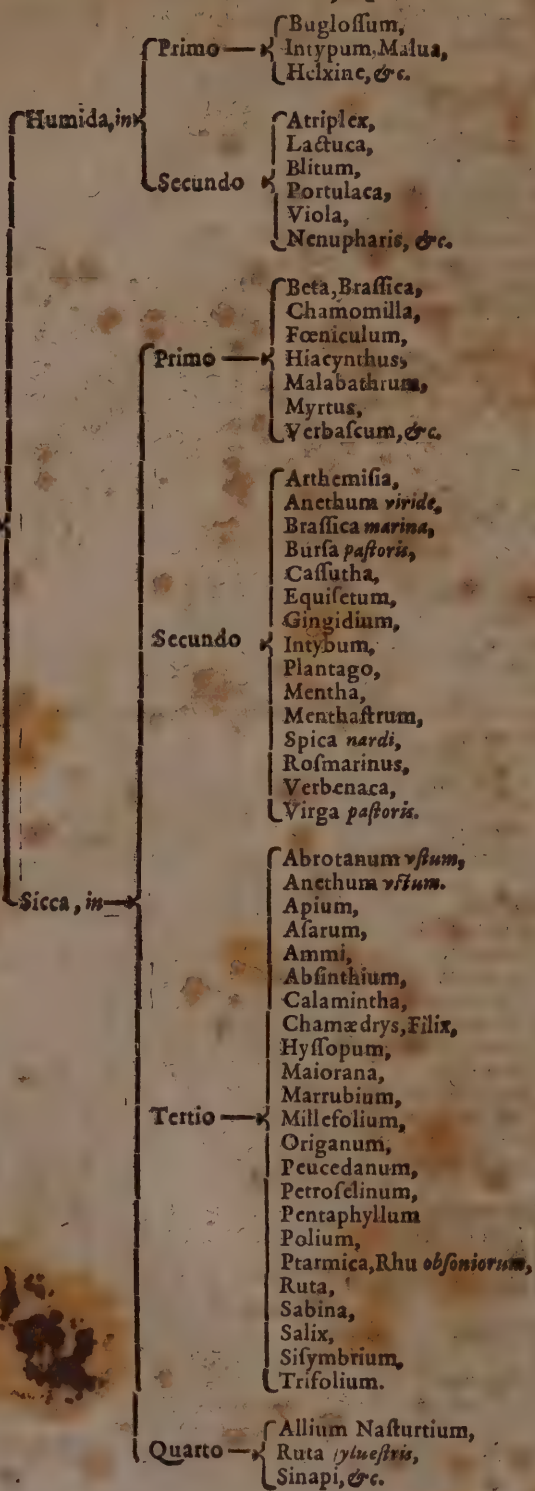 Bugloſſum,
Primo Intypum, Malua,
Helxine, &c.
Humida, in
Atriplex,
Lactuca,
Blitum,
Secundo Portulaca,
Viola,
Nenupharis, &c.
Beta, Braſſica,
Chamomilla,
Fœniculum,
Primo Hiacynthus,
Malabathrum,
Myrtus,
Verbaſcum, &c.
Arthemiſia,
Anethum viride,
Braſſica marina,
Burſa paſtoris,
Caſſutha,
Equiſetum,
Gingidium,
Secundo Intybum,
Plantago,
Mentha,
Menthaſtrum,
Spica nardi,
Roſmarinus,
Verbenaca,
Virga paſtoris.
Abrotanum vſtum,
Anethum vſtum.
Sicca, in
Apium,
Aſarum,
Ammi,
Abſinthium,
Calamintha,
Chamædrys, Filix,
Hyſſopum,
Maiorana,
Marrubium,
Tertio Millefolium,
Origanum,
Peucedanum,
Petroſelinum,
Pentaphyllum
Polium,
Ptarmica, Rhu obſoniorum,
Ruta,
Sabina,
Salix,
Siſymbrium,
Trifolium.
Allium Naſturtium,
Quarto Ruta ſylueſtris,
Sinapi, &c.